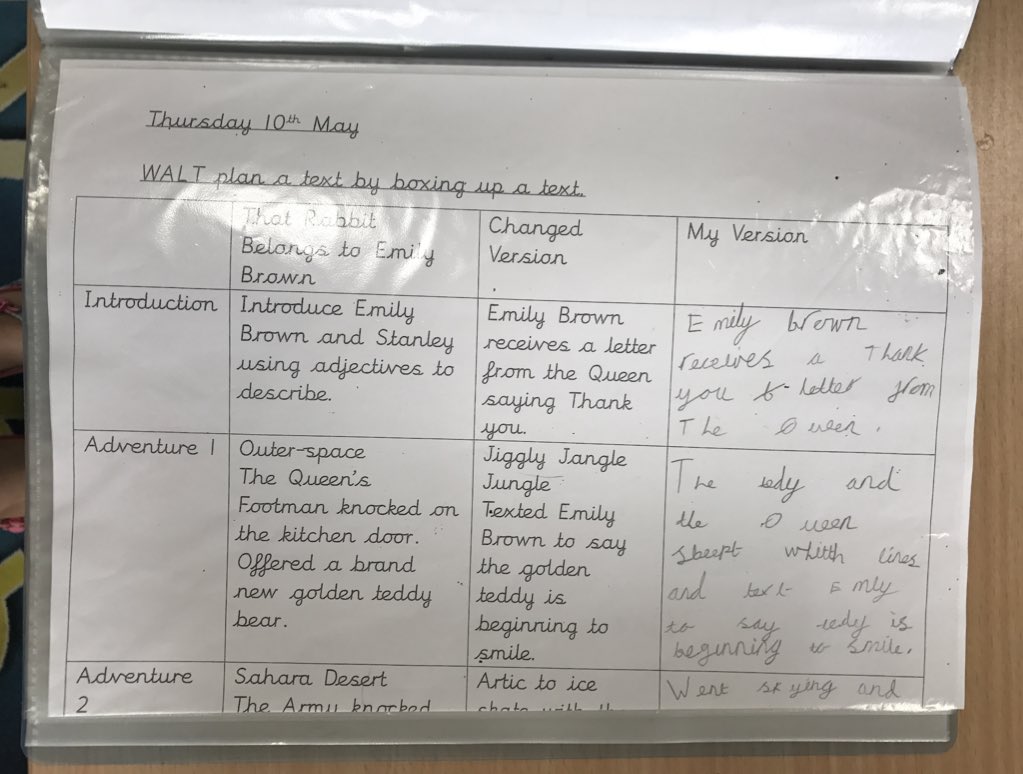 Thursday 10th May
WALT plan a text by boxing up a text.
That Rabbit
Belongs to Emily
Brown
Changed
Version
My Version
Introduction
Introduce Emily
Brown and Stanley
using adjectives to
describe.
Emily Brown
receives a letter
from the Queen
saying Thank
you.
Emily brown
receives a Thank
you letter from
The Queen.
Adventure 1
Outer-space
The Queen's
Footman knocked on
the kitchen door.
Offered a brand
new golden teddy
bear.
Jiggly Jangle
Jungle
Texted Emily
Brown to say
the golden
teddy is
beginning to
smile.
The tedy and
the Queen
and text Emly
to say tedy is
beginning to smile.
Adventure
2
Sahara Desert
The Army knocked
Artic to ice
Went skying and